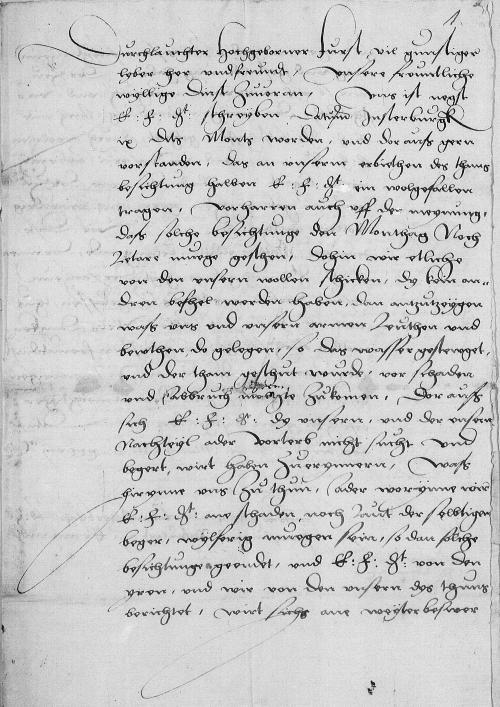 1.
Durchlauchter Hochgeborner Furst, vil gunstiger
lyber her und freundt, unsere freuntliche
wyllige dinst zuuoran, Uns ist neyst
E: f: dt: schreyben datum Insterburgk
ix dits Monts worden, und doraus gern
vorstanden, das an unserm erbiethen des thams
besichtung halben E: f: dt: ein wolgefallen
tragen, vorharren auch uff der meynung,
das solche besichtunge den Monthag Noch
letare muege geschen, dohin wir etliche
von den unsern wollen schicken, dy kein an-
dren befehel werden haben, dan antzutzeygen
wass uns und unsern armen leuthen und
do gelegen, so das wasser gestewget,
und der tham geschut wurde, vor schaden
und abbruch mochte zukomen, Dorauss
sich E: f: dt: dy unsern, und der unsern
Nachteyl ader vorterb nicht sucht und
begert, wirt haben zuerynnern, Wass
hirynne uns zu thun, ader worynne wir
E: f: dt: ane schaden, noch laut der selbtigen
beger, muegen sein, so dan solche
besichtunge geendet, und E: f: dt: von den
yren, und wir von den unsern des thuns
berichtet, wirt sichs ane weyter beswer